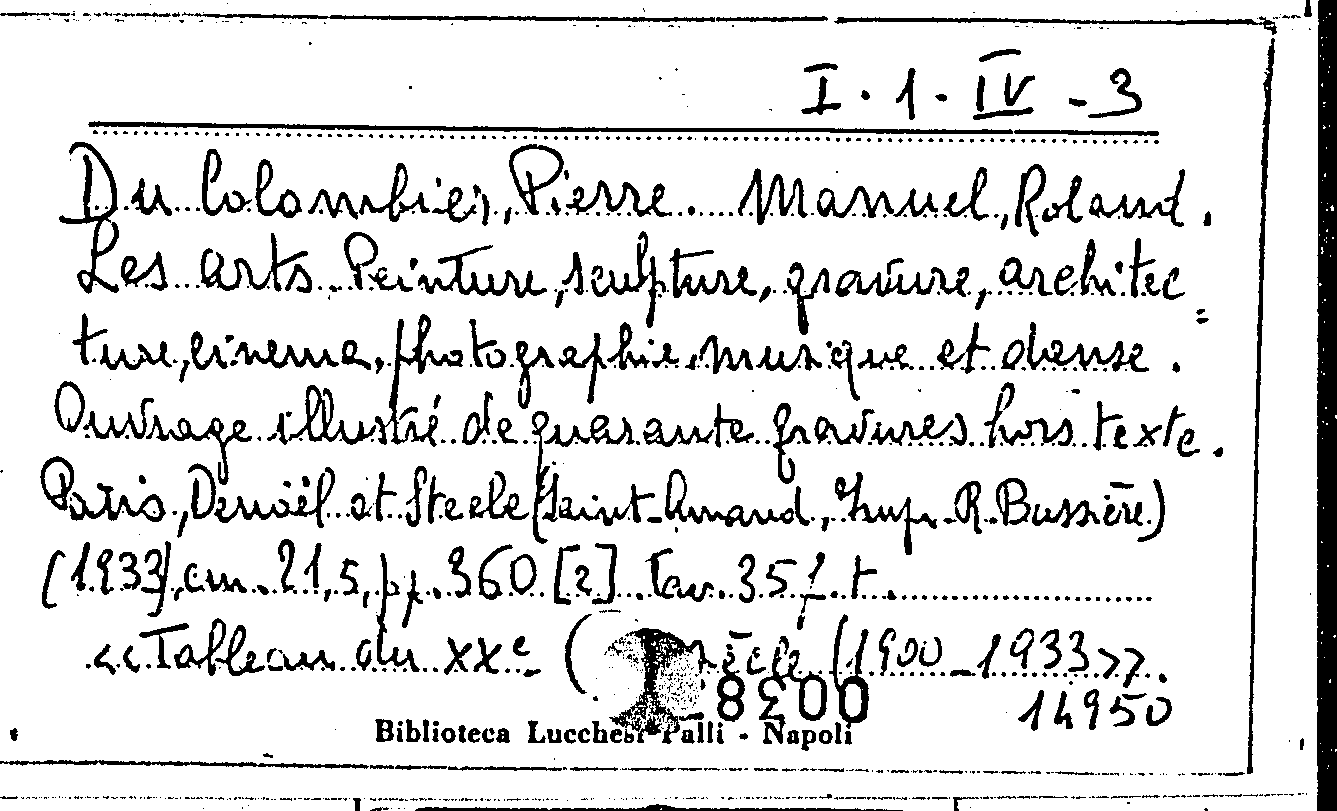 I.1.IV-3
Du Colombier, Pierre. Manuel, Roland.
Les arts. Peinture, sculpture, gravure, architec=
ture, cinema, photographie, musique et danse.
Ouvrage illustré de quarante gravures hors texte.
Paris, Denoël et Steele (Saint-Amand, Imp. R. Bussière)
[1933], cm. 21,5, pp. 360 [2]. Tav. 35 f. t.
<<Tableau du XXe siècle (1900-1933>>.
0038
14950
Biblioteca Lucchesi Palli - Napoli